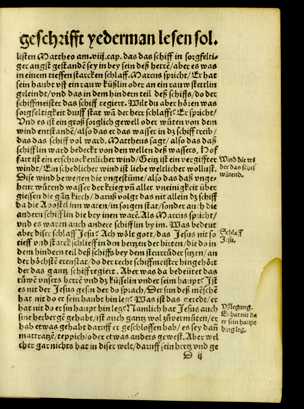 geschrifft yederman lesen sol.
listen Mattheo am .viij. cap. das das schiff in sorgfelti
ger angst gestandē sey in bey sein deß herrē / aber es was
in einem tieffen starcken schlaff. Marcus spricht / Er hat
sein haubt vff ein rauw küssin oder an ein rauw
geleindt / vnd das in dem hindern teil deß schiffs / do der
schiffmeister das schiff regiert. Wilt du aber hören was
sorgfeltigkeit
Vnd es ist ein groß sorglich gewell oder wüten von dem
wind entstandē / also das er das wasser in dz schiff treib /
das das schiff vol ward. Mattheus sagt / also das daß
schifflin ward bedeckt von den wellen deß wassers. Hof
fart ist ein erschrockenlicher wind / Geitz ist ein vergiffter
windt / Ein schedlicher wind ist liebe weltlicher wollust.
Dise wind bewegen die vngestüme / also das daß vnge
heür wütend wasser der krieg vñ aller vneinigkeit über
giessen die gātz kirch / darauß volgt das nit allein dz schiff
da die Apostel inn waren / in sorgen stat / sonder auch die
andern schifflin die bey inen warē. Als Marcus spricht /
vnd es waren auch andere schifflin by im. Was bedeut
aber diser schlaff Jesu? Ach wölt gott / das Jesus nit so
tieff vnd starck schlieff in den hertzen der hirten / die do in
dem hindern teil deß schiffs bey dem steürruder sitzen / an
der höchstē eren stat / do der recht schiffmeister hingehört
der das gantz schiff regiert. Aber was da bedeütet das
rüwē vnsers herrē vnd dz küsselin vnder seim haupt? Ist
es nit der Jesus gesin der do sprach / Der sun deß mēschē
hat nit do er sein haubt hin leg? Was ist das geredt / er
hat nit do er sin haupt hin leg? Namlich hat Jesus auch
sine herbergē gehabt / ist auch gantz wol zůvermůten / er
hab etwas gehabt daruff er geschloffen hab / es sey dañ
matratzē, teppich / oder etwas anders gewest. Aber wel
cher gar nichts hat in diser welt / daruff sein hertz vnd ge
D ij
Wind die vn
der das schiff
wütend.
Schlaff
Jesu.
Pflegung.
Er hat nit da
er sein haupt
hin leg.